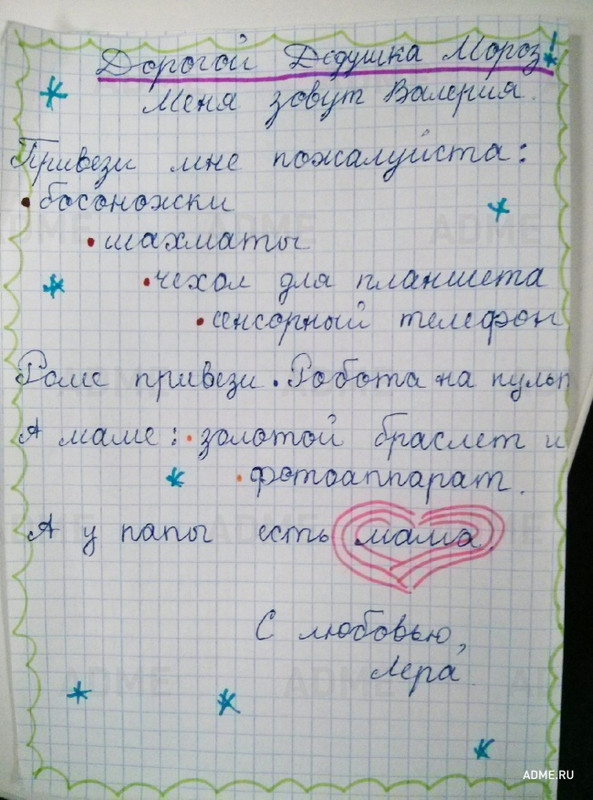 Дорогой Дедушка Мороз!
Меня зовут Валерия.
Привези мне пожалуйста:
• босоножки
• шахматы
• чехол для планшета
• сенсорный телефон
Роме привези • Робота на пульт
А маме: • золотой браслет и
• фотоаппарат.
А у папы есть мама.
С любовью,
Лера
ADME.RU